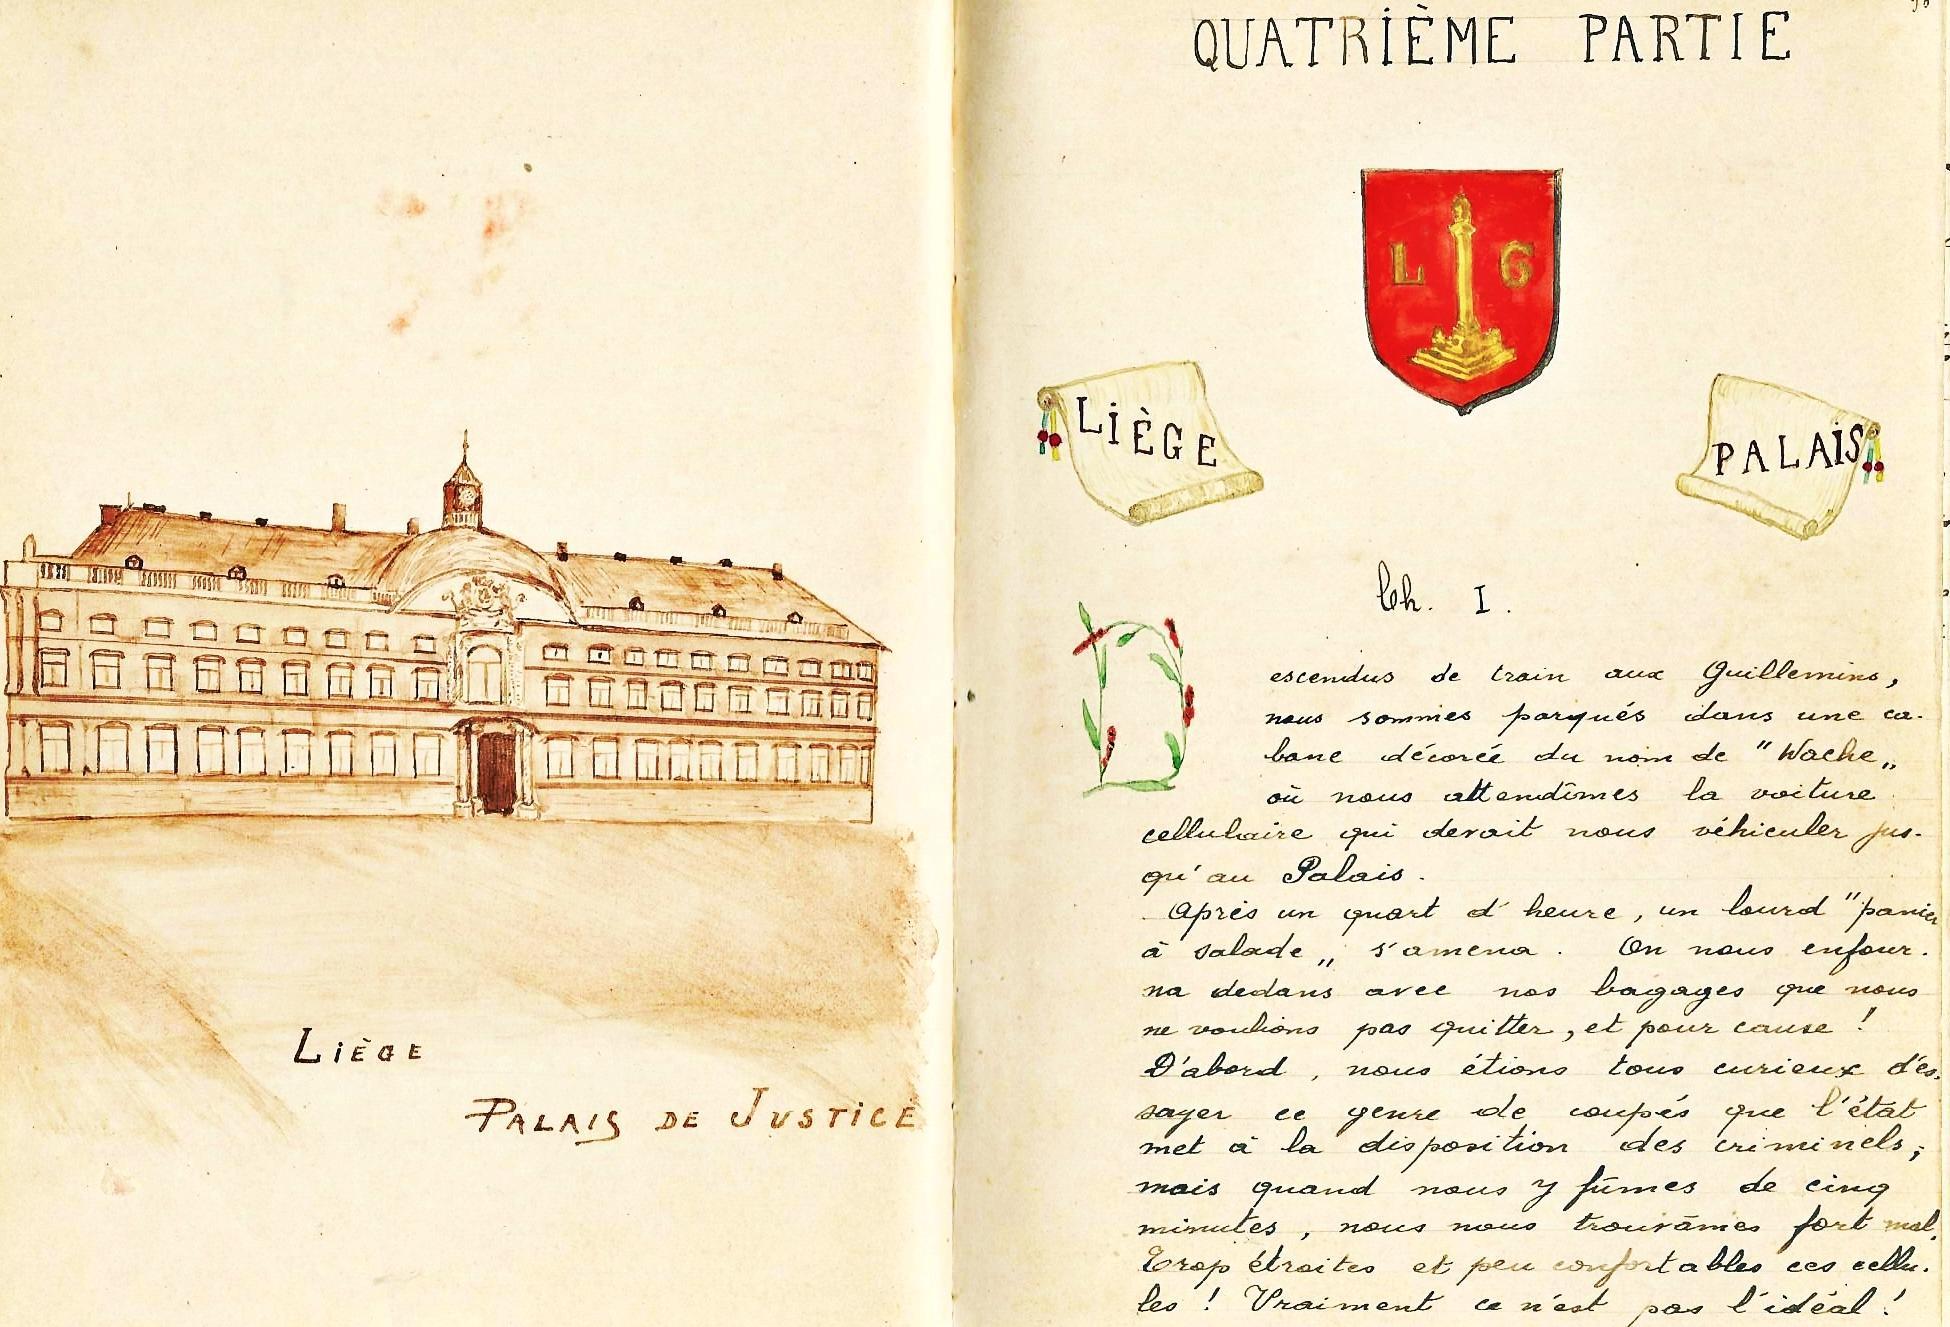 LIÈGE
PALAIS DE JUSTICE
QUATRIÈME PARTIE
L G
LIÈGE
PALAIS
Ch. I.
Descendus de train aux Guillemins,
nous sommes parqués dans une ca-
bane décorée du nom de "Wache„
où nous attendîmes la voiture
cellulaire qui devait nous véhiculer jus-
qu'au Palais.
Après un quart d'heure, un lourd "panier
à salade„ s'amena. On nous enfour-
na dedans avec nos bagages que nous
ne voulions pas quitter, et pour cause !
D'abord, nous étions tous curieux d'es-
sayer ce genre de coupés que l'état
met à la disposition des criminels;
mais quand nous y fûmes de cinq
minutes, nous nous trouvâmes fort mal.
Trop étroites et peu confortables ces cellu-
les ! Vraiment ce n'est pas l'idéal !